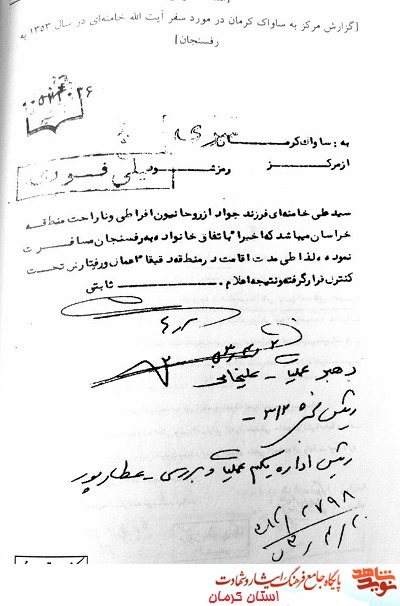 [گزارش مرکز به ساواک کرمان در مورد سفر آیت الله خامنه‌ای در سال ۱۳۵۳ به
رفسنجان]
به : ساواک کرمان
از مرکز رمز شود
خیلی فوری
سید علی خامنه‌ای فرزند جواد از روحانیون افراطی و ناراحت منطقه
خراسان میباشد که اخیرا" باتفاق خانواده به رفسنجان مسافرت
نموده، لذا طی مدت اقامت در منطقه دقیقا" اعمال و رفتارش تحت
کنترل قرار گرفته و نتیجه اعلام . ثابتی
رهبر عملیات - علیخانی
رئیس بخش ۳۱۲ -
رئیس اداره یکم عملیات و بررسی - عطارپور
نوید شاهد
پایگاه جامع فرهنگ ایثار و شهادت
استان کرمان